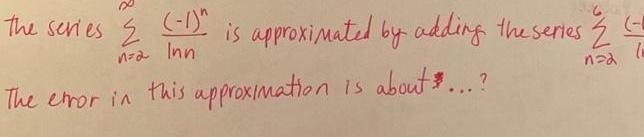 The series ∞ Σ n=2 (-1)^n / ln n is approximated by adding the series 6 Σ n=2 (-
The error in this approximation is about ...?